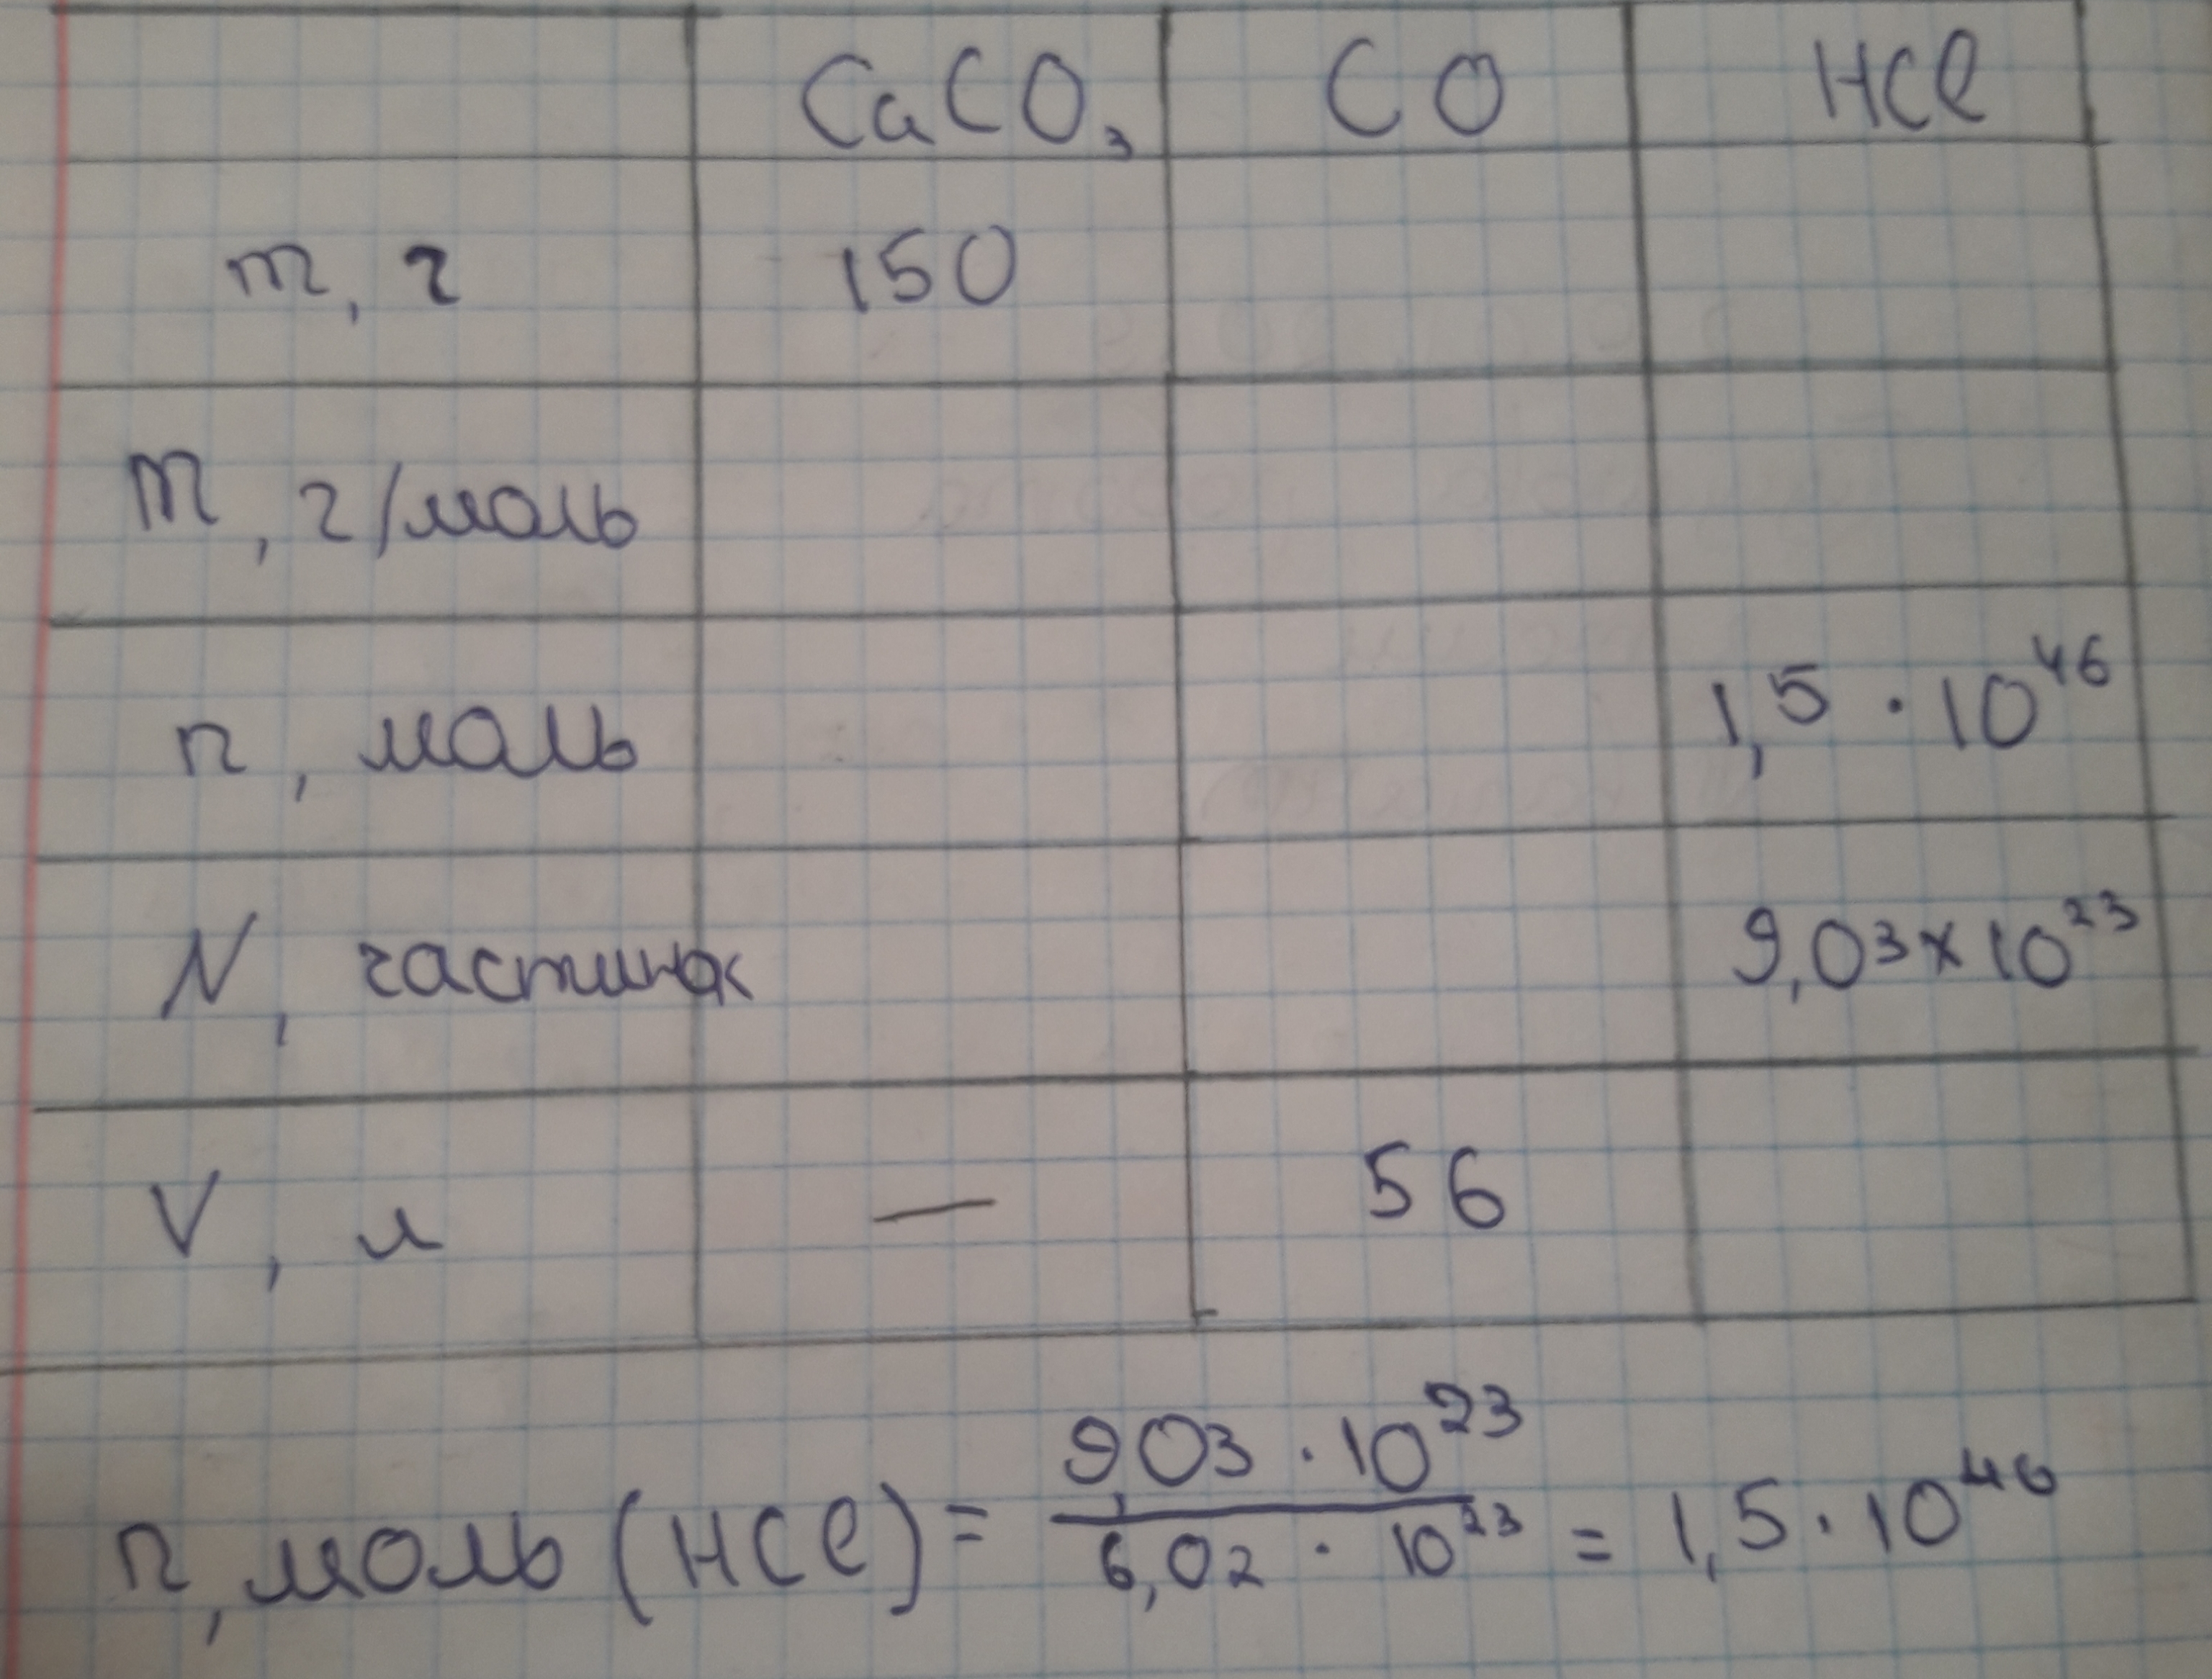 CaCO₃ CO HCl
m, г 150
M, г/моль
n, моль 1,5 · 10⁴⁶
N, частинок 9,03 × 10²³
V, л — 56
n, моль (HCl) = 9,03 · 10²³ / 6,02 · 10²³ = 1,5 · 10⁴⁶